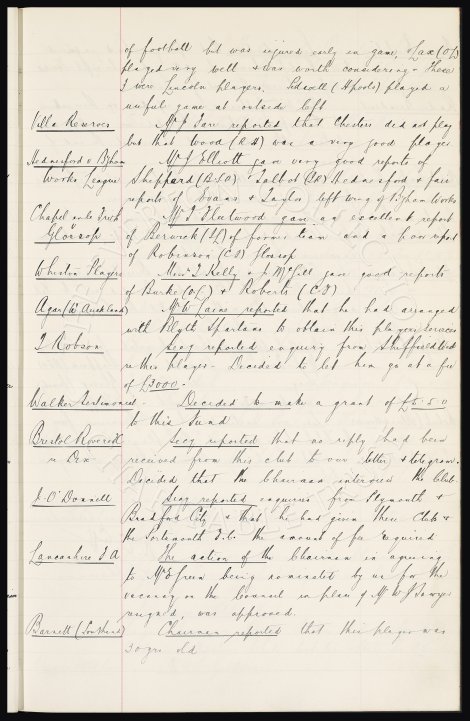 of football but was injured early in game, Lax (OL)
played very well & was worth considering. These
3 were Lincoln players. Lidwell (Hpools) played a
useful game at outside left
Villa Reserves Mr J Tarr reported that Chesters did not play
but that Wood (RH) was a very good player
Hednesford v Bgham Mr J Elliott gave very good reports of
Works League Sheppard (RSO) & Talbot (IR) Hednesford & fair
reports of Evans & Taylor, left wing of Bgham Works
Chapel en le Frith Mr J Fleetwood gave an excellent report
v Glossop of Berwick (IL) of former team and a poor report
of Robinson (CF) Glossop
Wheston Players Messrs J Kelly & J McGill gave good reports
of Burke (OL) & Roberts (CF)
Agar (W. Auckland) Mr W Cains reported that he had arranged
with Blyth Spartans to obtain this players services
J Robson Secy reported enquiry from Sheffield Utd
re this player. Decided to let him go at a fee
of £3000.
Walker Testimonial - Decided to make a grant of £5.5.0
to this Fund
Bristol Rovers Secy reported that no reply had been
re Dix received from this club to our letter & telegram.
Decided that the Chairman interview the Club.
J. O'Donnell Secy reported enquiries from Plymouth &
Bradford City & that he had given these Clubs &
the Portsmouth F.C. the amount of fee required
Lancashire F A The action of the Chairman in agreeing
to Mr E Green being nominated by us for the
vacancy on the Council in place of Mr W J Sawyer
resigned, was approved.
Barnett (Southend) Chairman reported that this player was
30 yrs old